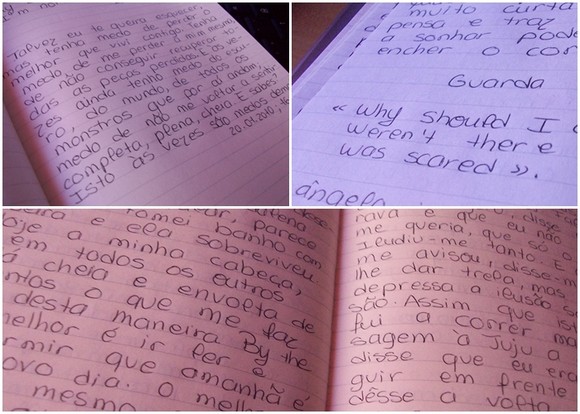 Talvez eu te queira esquecer
mas tenho medo de perder o
melhor que vivi contigo. Tenho
medo, de me perder a mim mesma,
de não conseguir recuperar to-
das as peças perdidas. Às ve-
zes ainda tenho medo do escu-
ro, do mundo, de todos os
monstros que por aí andam,
medo de não me voltar a sentir
completa, plena, cheia. E sabes?
Isto às vezes são medos
20.01.2010
muito curta
pensa e traz
a sonhar pode
encher o cor
Guarda
« Why should I
weren't there
was scared ».
ângela
parece
tomei banho com
e ela sobreviveu
oje a minha cabeça,
em todos os outros
cheia e envolta de
ntos o que me faz
desta maneira. By the
melhor é ir ler e
rmir que amanhã é
ovo dia. O melh
mesmo
rava e que disse
me queria, que só o
Iludiu-me tanto. E
me avisou, disse-m
lhe dar trela, mas
depressa a ilusão s
são. Assim que is
fui a correr ma
sagem à Juju a
disse que eu era
guir em frente
désse a volta